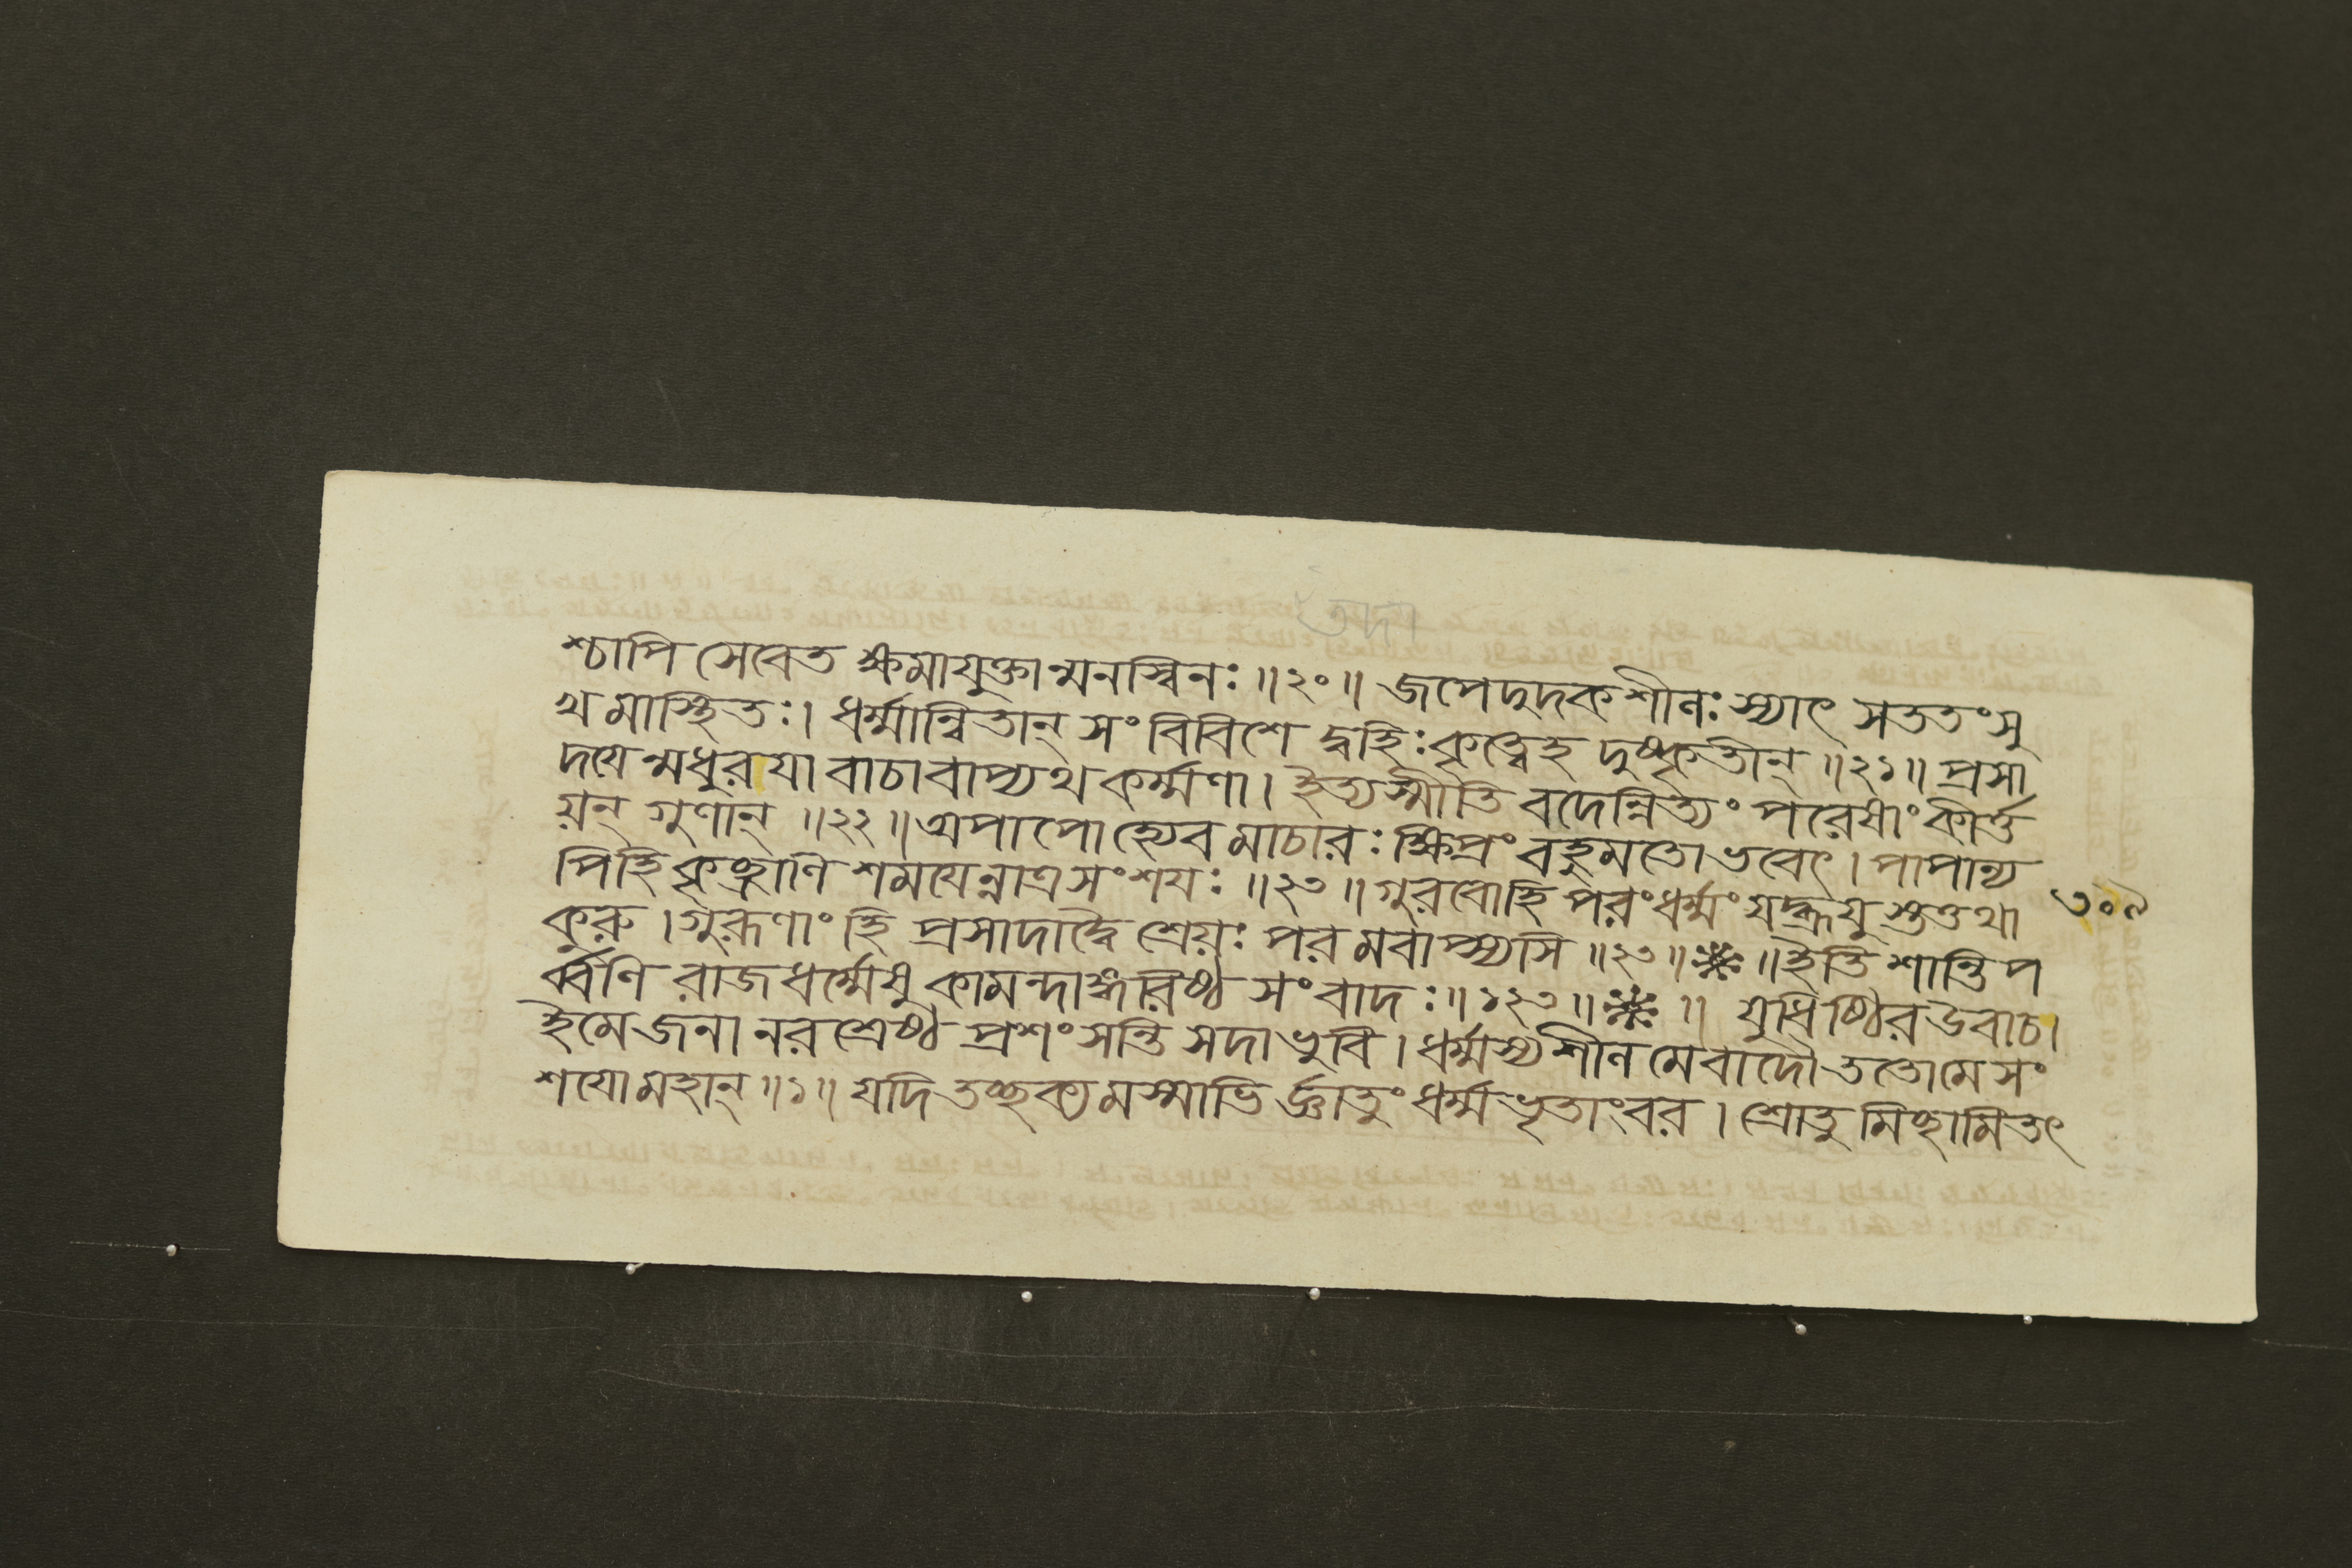 শ্চাপি সেবেত ক্ষমাযুক্তান্মনস্বিনঃ॥২০॥ জপেদুদকশীলঃ স্যাৎ সততং সু
খমাস্থিতঃ। ধর্ম্মান্বিতান্ সংবিবিশেদ্বহিঃ কৃত্বেহ দুষ্কৃতীন্॥২১॥ প্রসা
দযেন্মধুরযা বাচা বাপ্যথ কর্ম্মণা। ইত্যস্মীতি বদেন্নিত্যং পরেষাং কীর্ত্ত
য়ন্ গুণান্॥২২॥ অপাপোহ্যেবমাচারঃ ক্ষিপ্রং বহুমতো ভবেৎ। পাপান্য
পিহি কৃচ্ছ্রাণি শমযেন্নাত্র সংশযঃ॥২৩॥ গুরবোহি পরং ধর্ম্মং যদ্ব্রূযুস্তত্তথা
কুরু। গুরূণাং হি প্রসাদাদ্বৈ শ্রেয়ঃ পরমবাপ্স্যসি॥২৩॥ ॥ইতি শান্তিপ
র্ব্বণি রাজধর্ম্মেষু কামন্দাঙ্গরিষ্ঠ সংবাদঃ॥১২৩॥ ॥ যুধিষ্ঠির উবাচ।
ইমে জনা নরশ্রেষ্ঠ প্রশংসন্তি সদা ভুবি। ধর্ম্মস্য শীলমেবাদৌ ততোমে সং
শযো মহান্॥১॥ যদি তচ্ছক্যমস্মাভির্জ্ঞাতুং ধর্ম্মভৃতাংবর। শ্রোতুমিচ্ছামি তৎ
৩০৯